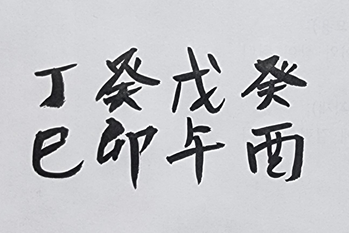 丁癸戊癸
巳卯午酉